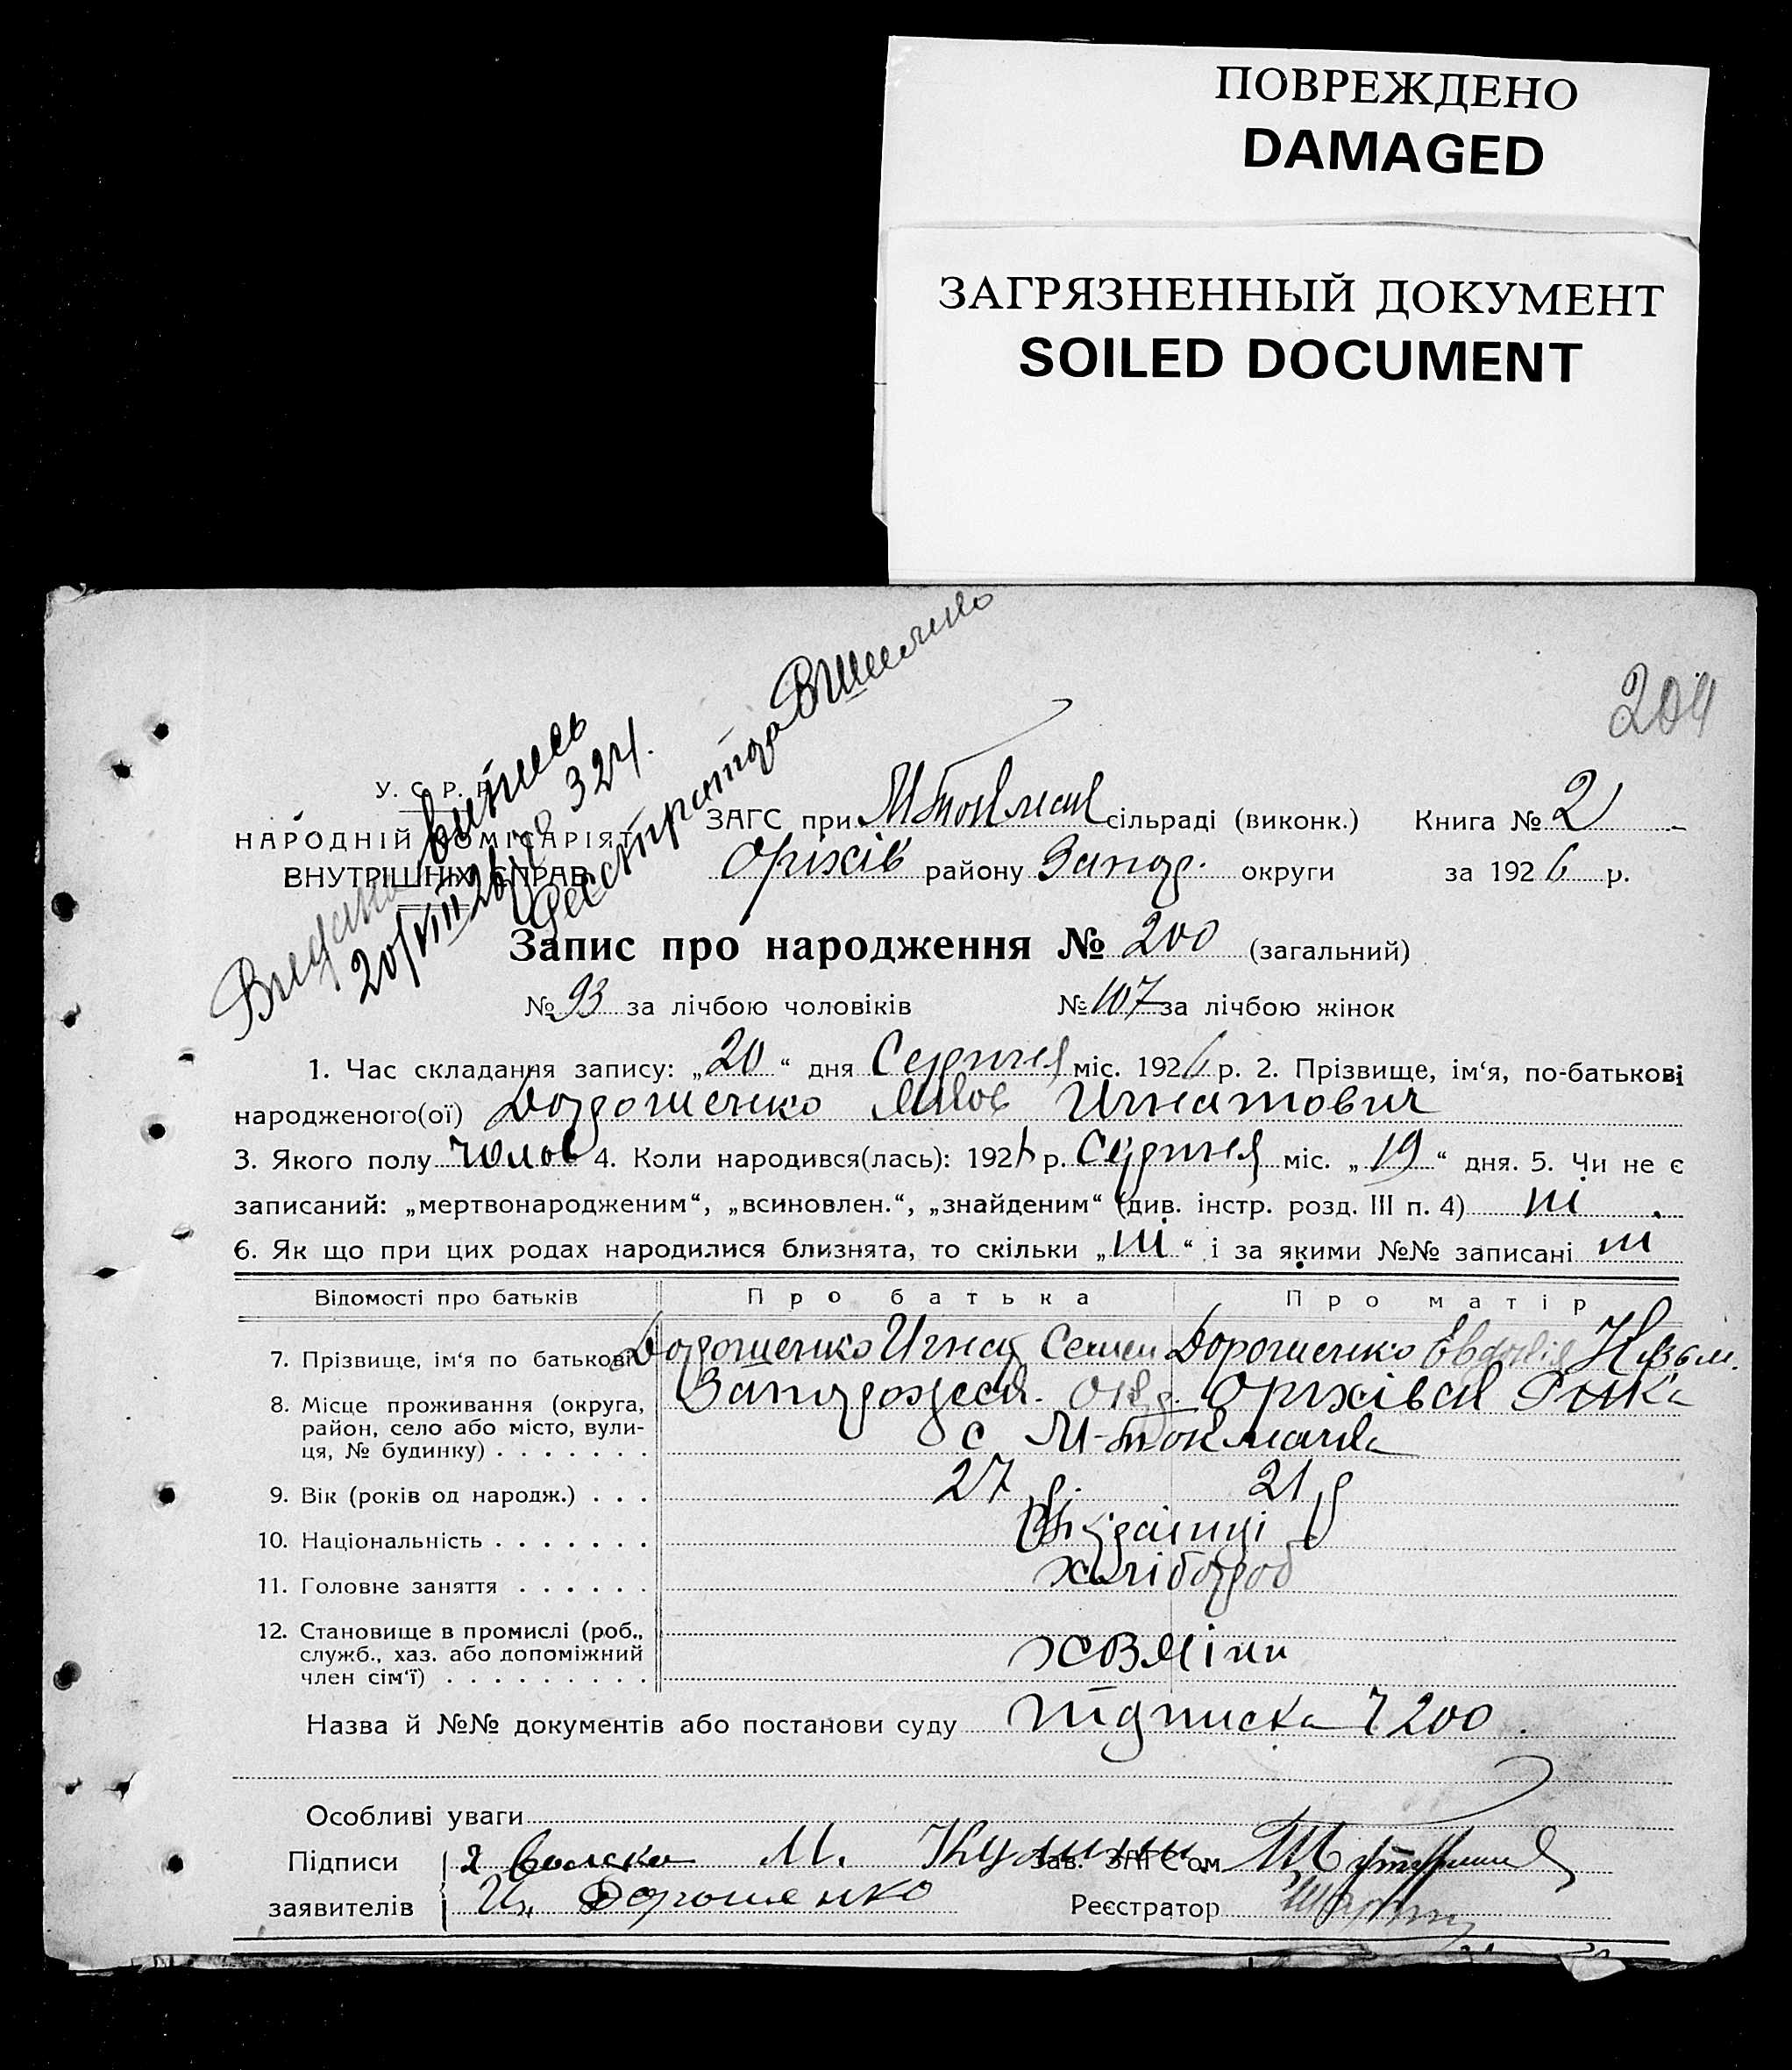 ПОВРЕЖДЕНО
DAMAGED
ЗАГРЯЗНЕННЫЙ ДОКУМЕНТ
SOILED DOCUMENT
204
Видана випись
20/VIII 26 р № 324.
Реєстратор
У. С. Р. Р.
НАРОДНІЙ КОМІСАРІЯТ
ВНУТРІШНІХ СПРАВ
ЗАГС при М Токмац сільраді (виконк.) Книга № 2
Оріхів району Запор. округи за 1926 р.
Запис про народження № 200 (загальний)
№ 93 за лічбою чоловіків № 107 за лічбою жінок
1. Час складання запису: „20“ дня Серпня міс. 1926 р. 2. Прізвище, ім‘я, по-батькові
народженого(ої) Дорошенко Яков Игнатович
3. Якого полу чолов 4. Коли народився(лась): 1926 р. Серпня міс. „19“ дня. 5. Чи не є
записаний: „мертвонародженим“, „всиновлен.“, „знайденим“ (див. інстр. розд. III п. 4) ні
6. Як що при цих родах народилися близнята, то скільки „ні“ і за якими №№ записані ні
Відомості про батьків Про батька Про матір
7. Прізвище, ім‘я по батькові Дорошенко Игнат Семен Дорошенко Евдокія Кузьм.
8. Місце проживання (округа, Запорожеск. окр. Оріхівск Рика
район, село або місто, вули-
ця, № будинку) с. М-Токмачка
9. Вік (років од народж.) 27 р. 21 р
10. Національність Українці
11. Головне заняття хлібороб
12. Становище в промислі (роб.,
служб., хаз. або допоміжний
член сім‘ї) хозяіни
Назва й №№ документів або постанови суду підписка 7200.
Особливі уваги
Підписи М. Зав. ЗАГС‘ом
заявителів Иг. Дорошенко Реєстратор